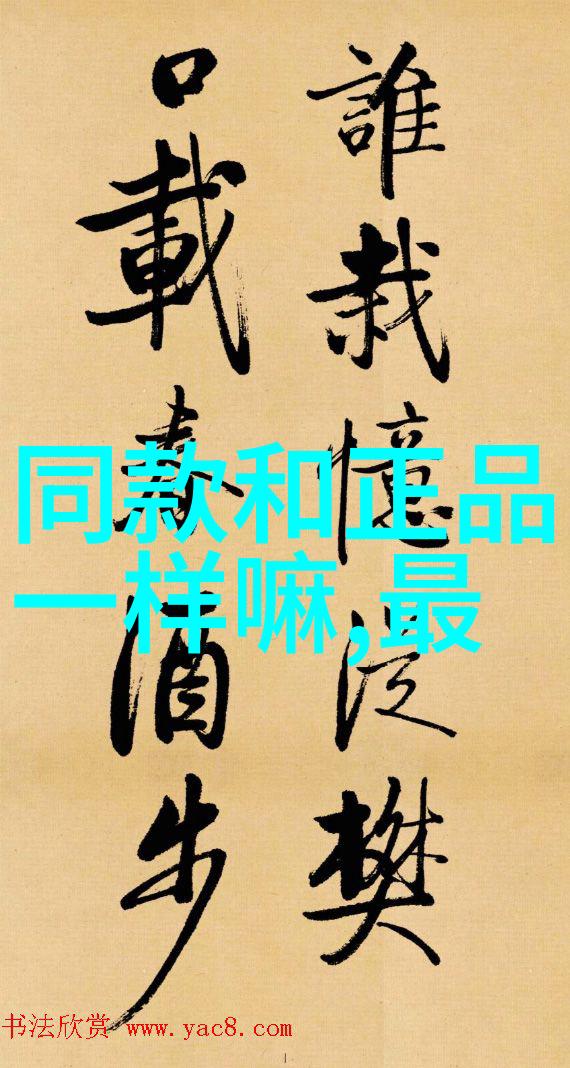 誰栽憶泛樊
口載春酒步
同款和正品
一样嘛,最
书法欣赏 www.yac8.com